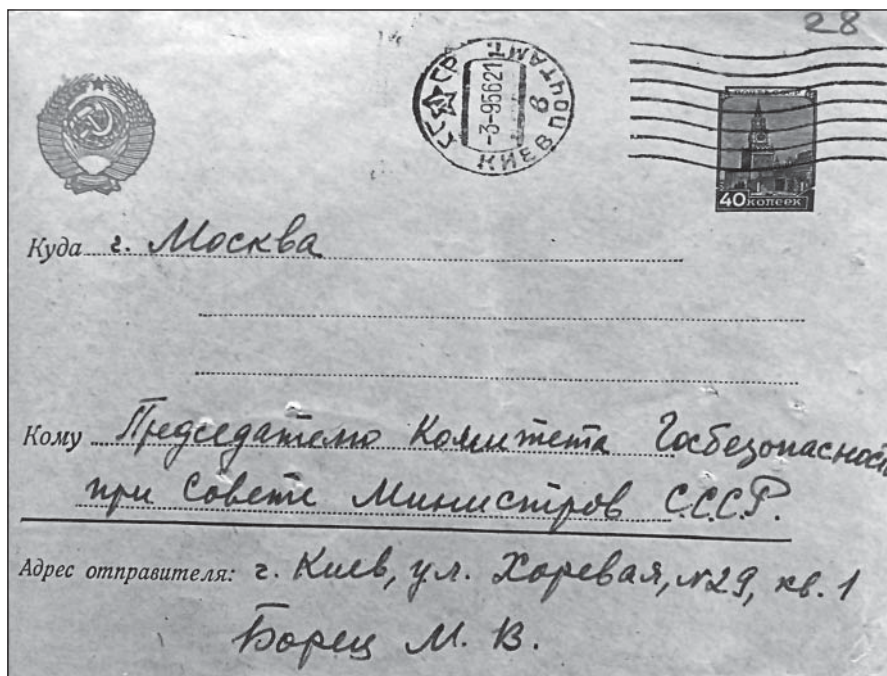 28
СССР
-3-95621
КИЕВ ПОЧТАМТ
8
40 копеек
Куда г. Москва
Кому Председателю Комитета Госбезопасност
при Совете Министров С.С.С.Р.
Адрес отправителя: г. Киев, ул. Хоревая, №29, кв. 1
Борец М. В.